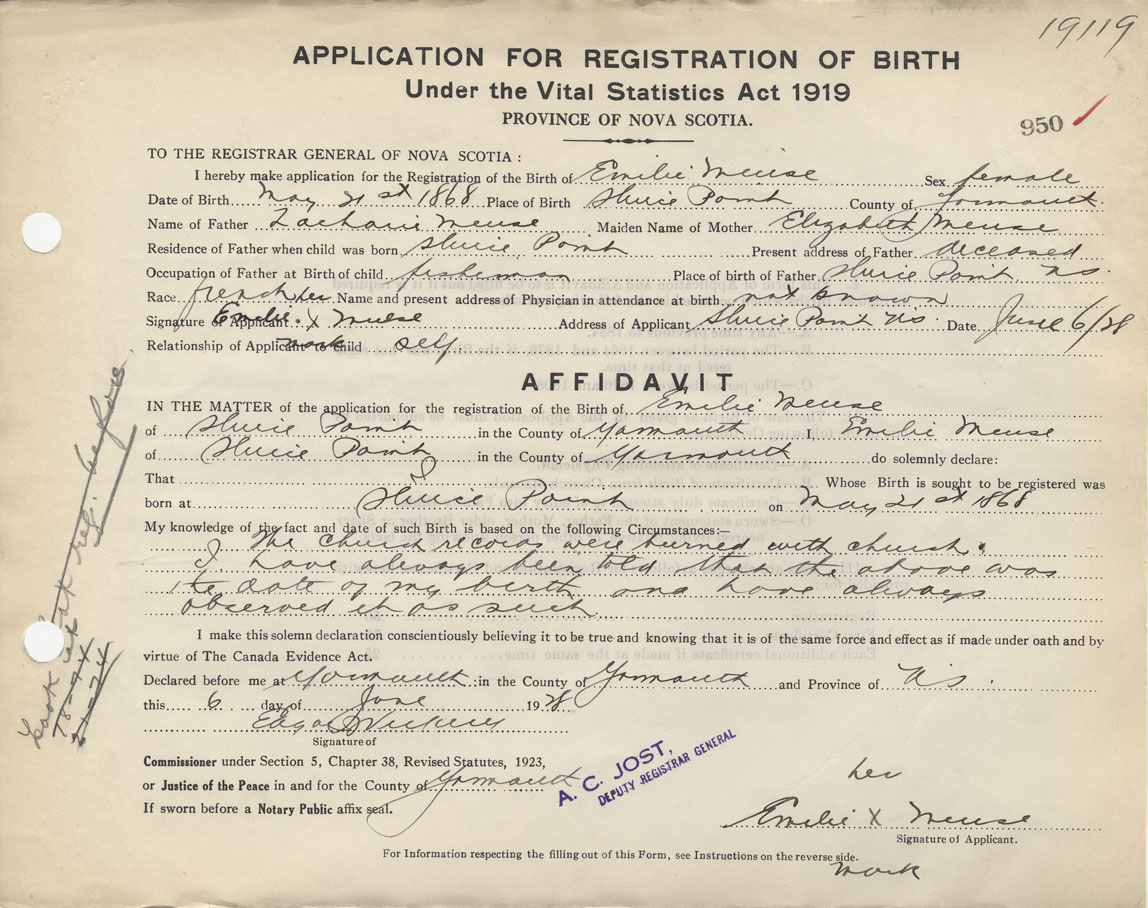 19119
APPLICATION FOR REGISTRATION OF BIRTH
Under the Vital Statistics Act 1919
PROVINCE OF NOVA SCOTIA.
950
TO THE REGISTRAR GENERAL OF NOVA SCOTIA :
I hereby make application for the Registration of the Birth of Emilie Meuse Sex female
Date of Birth May 21st 1868 Place of Birth Sluice Point County of Yarmouth
Name of Father Zacharie Meuse Maiden Name of Mother Elizabeth Meuse
Residence of Father when child was born Sluice Point Present address of Father deceased
Occupation of Father at Birth of child fisherman Place of birth of Father Sluice Point NS.
Race french Name and present address of Physician in attendance at birth not known
her
Signature of Applicant Emilie X Meuse Address of Applicant Sluice Point NS Date June 6/28
mark
Relationship of Applicant to Child self
AFFIDAVIT
IN THE MATTER of the application for the registration of the Birth of Emilie Meuse
of Sluice Point in the County of Yarmouth I, Emilie Meuse
of Sluice Point in the County of Yarmouth do solemnly declare:
That I Whose Birth is sought to be registered was
born at Sluice Point on May 21st 1868
My knowledge of the fact and date of such Birth is based on the following Circumstances:—
The church records were burned with church.
I have always been told that the above was
the date of my birth and have always
observed it as such
I make this solemn declaration conscientiously believing it to be true and knowing that it is of the same force and effect as if made under oath and by
virtue of The Canada Evidence Act.
Declared before me at Yarmouth in the County of Yarmouth and Province of NS.
this 6 day of June 1928
Edgar
Signature of
Commissioner under Section 5, Chapter 38, Revised Statutes, 1923,
or Justice of the Peace in and for the County of Yarmouth
If sworn before a Notary Public affix seal.
A. C. JOST,
DEPUTY REGISTRAR GENERAL
her
Emilie X Meuse
Signature of Applicant.
mark
For Information respecting the filling out of this Form, see Instructions on the reverse side.
Look at reg. before